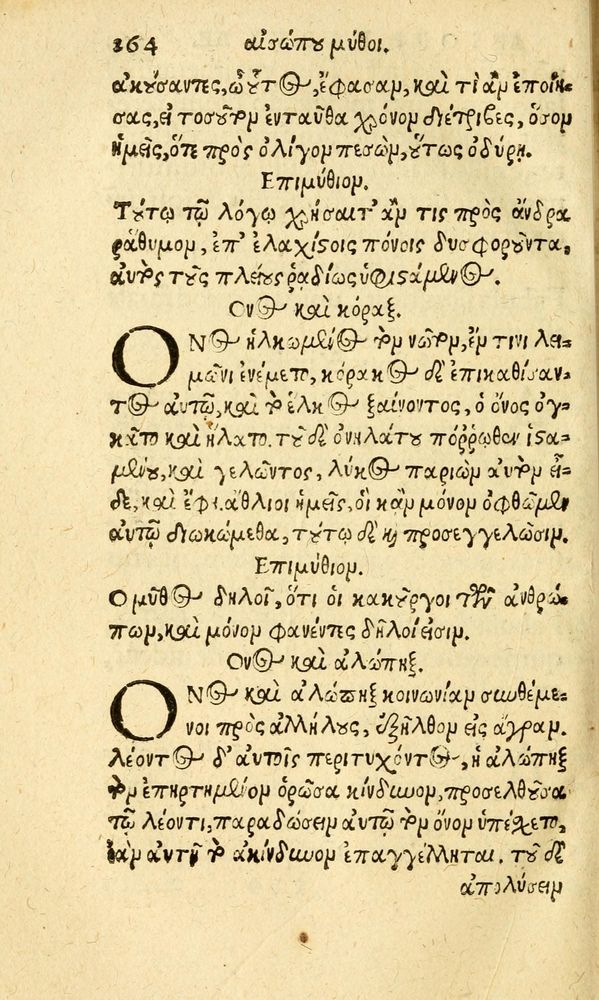 264 αἰσώπου μῦθοι.
ἀκούσαντες, ὦ οὗτος, ἔφασαν, καὶ τί ἂν ἐποίη-
σας, εἰ τοσοῦτον ἐνταῦθα χρόνον διέτριβες, ὅσον
ἡμεῖς, ὅτε πρὸς ὀλίγον πεσὼν, οὕτως ὀδύρῃ.
Επιμύθιον.
Τούτῳ τῷ λόγῳ χρήσαιτ' ἄν τις πρὸς ἄνδρα
ῥάθυμον, ἐπ' ἐλαχίστοις πόνοις δυσφοροῦντα,
αὐτὸς τοὺς πλείους ῥαδίως ὑφιστάμενος.
Ονος καὶ κόραξ.
ΟΝος ἡλκωμένος τὸν νῶτον, ἔν τινι λει-
μῶνι ἐνέμετο, κόρακος δὲ ἐπικαθίσαν-
τος αὐτῷ, καὶ τὸ ἕλκος ξαίνοντος, ὁ ὄνος ὀγ-
κᾶτο καὶ ἥλατο. τοῦ δὲ ὀνηλάτου πόῤῥωθεν ἱστα-
μένου, καὶ γελῶντος, λύκος παριὼν αὐτὸν εἶ-
δε, καὶ ἔφη. ἄθλιοι ἡμεῖς, οἳ κἂν μόνον ὀφθῶμεν
αὐτῷ διωκόμεθα, τούτῳ δὲ καὶ προσεγγελῶσιν.
Επιμύθιον.
Ο μῦθος δηλοῖ, ὅτι οἱ κακοῦργοι τῶν ἀνθρώ-
πων, καὶ μόνον φανέντες δῆλοί εἰσιν.
Ονος καὶ ἀλώπηξ.
ΟΝος καὶ ἀλώπηξ κοινωνίαν συνθέμε-
νοι πρὸς ἀλλήλους, ἐξῆλθον εἰς ἄγραν.
λέοντος δ' αὐτοῖς περιτυχόντος, ἡ ἀλώπηξ
τὸν ἐπηρτημένον ὁρῶσα κίνδυνον, προσελθοῦσα
τῷ λέοντι, παραδώσειν αὐτῷ τὸν ὄνον ὑπέσχετο,
ἐὰν αὐτῇ τὸ ἀκίνδυνον ἐπαγγέλληται. τοῦ δὲ
ἀπολύσειν